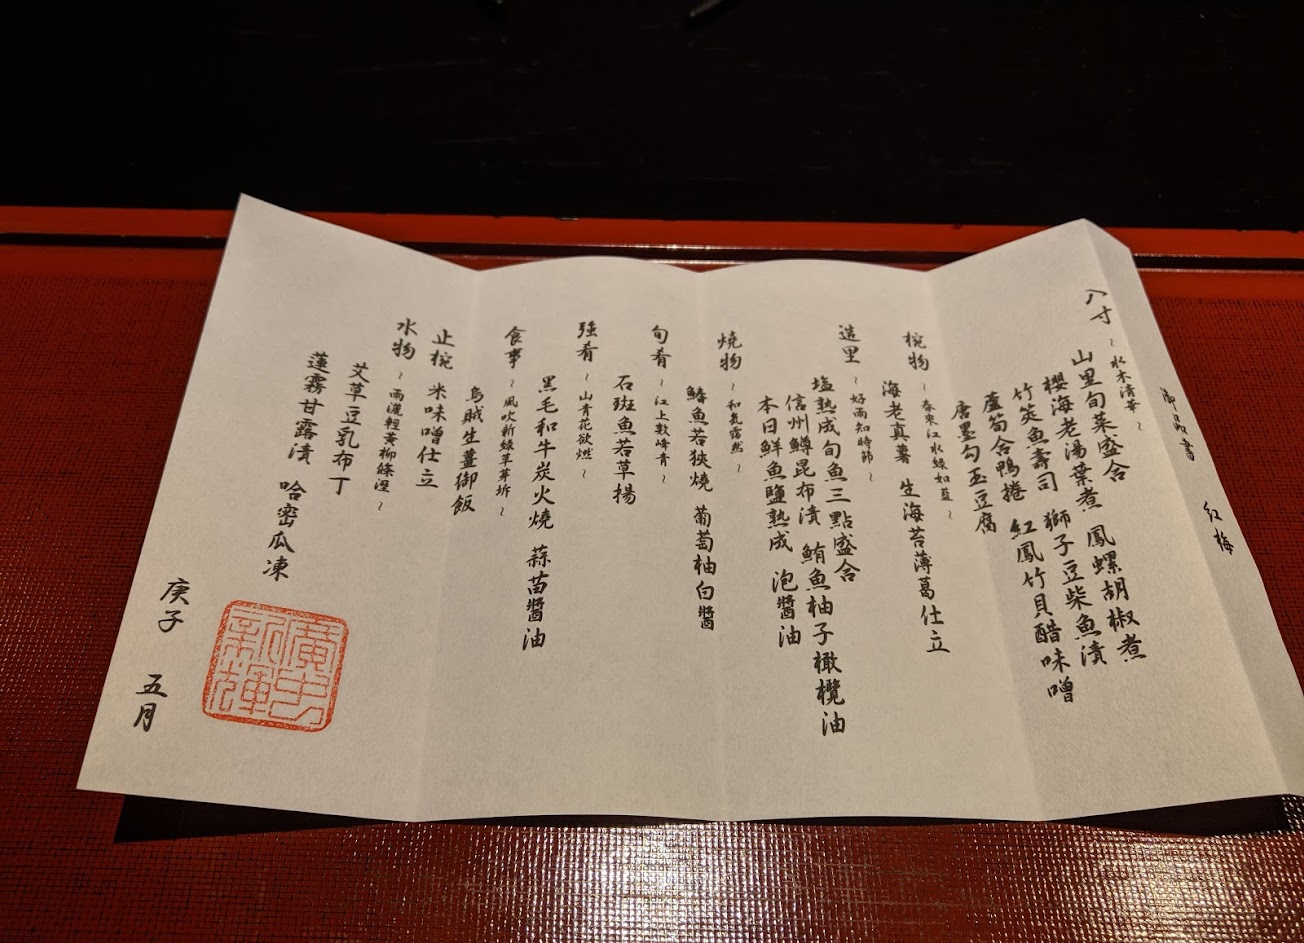 御品書 紅梅
八寸 ~水木清華~
山里旬菜盛合 鳳螺胡椒煮
櫻海老湯葉煮 獅子豆柴魚漬
竹筴魚壽司 紅鳳竹貝醋味噌
蘆筍合鴨捲
唐墨勾玉豆腐
椀物 ~春來江水綠如藍~
海老真薯 生海苔薄葛仕立
造里 ~好雨知時節~
塩熟成旬魚三點盛合
信州鱒昆布漬 鮪魚柚子橄欖油
本日鮮魚鹽熟成 泡醬油
燒物 ~和氣靄然~
鰆魚若狹燒 葡萄柚白醬
旬肴 ~江上數峰青~
石斑魚若草揚
強肴 ~山青花欲燃~
黑毛和牛炭火燒 蒜苗醬油
食事 ~風吹新綠草芽坼~
烏賊生薑御飯
止椀 米味噌仕立
水物 ~雨灑輕黃柳條溼~
艾草豆乳布丁
蓮霧甘露漬 哈密瓜凍
庚子 五月